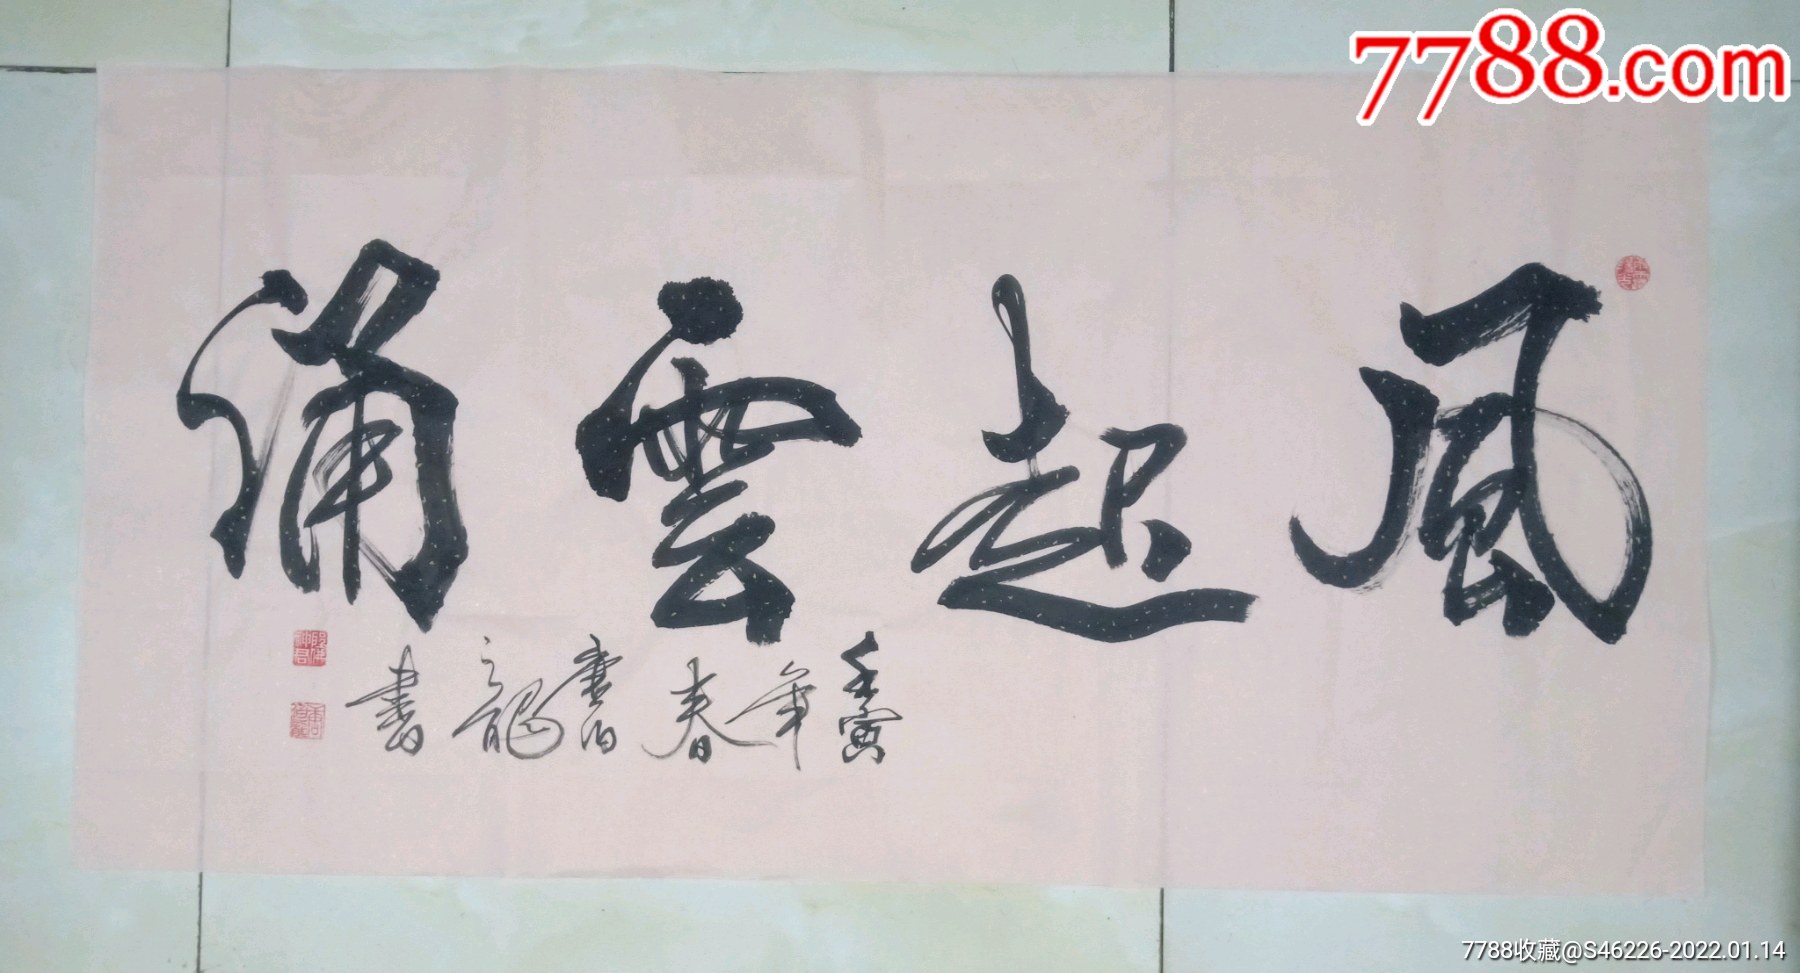 7788.com
風起雲涌
壬寅年春書 龍書
7788收藏@S46226-2022.01.14